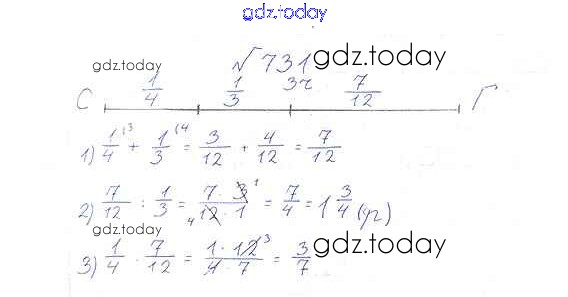 gdz.today
№731 gdz.today
gdz.today
C 1/4 1/3 3г 7/12 Г
1) 1/4 (3 + 1/3 (4 = 3/12 + 4/12 = 7/12
2) 7/12 : 1/3 = 7·3 1/4 12·1 = 7/4 = 1 3/4 (дг)
3) 1/4 · 7/12 = 1·12 3/4·7 = 3/7 gdz.today